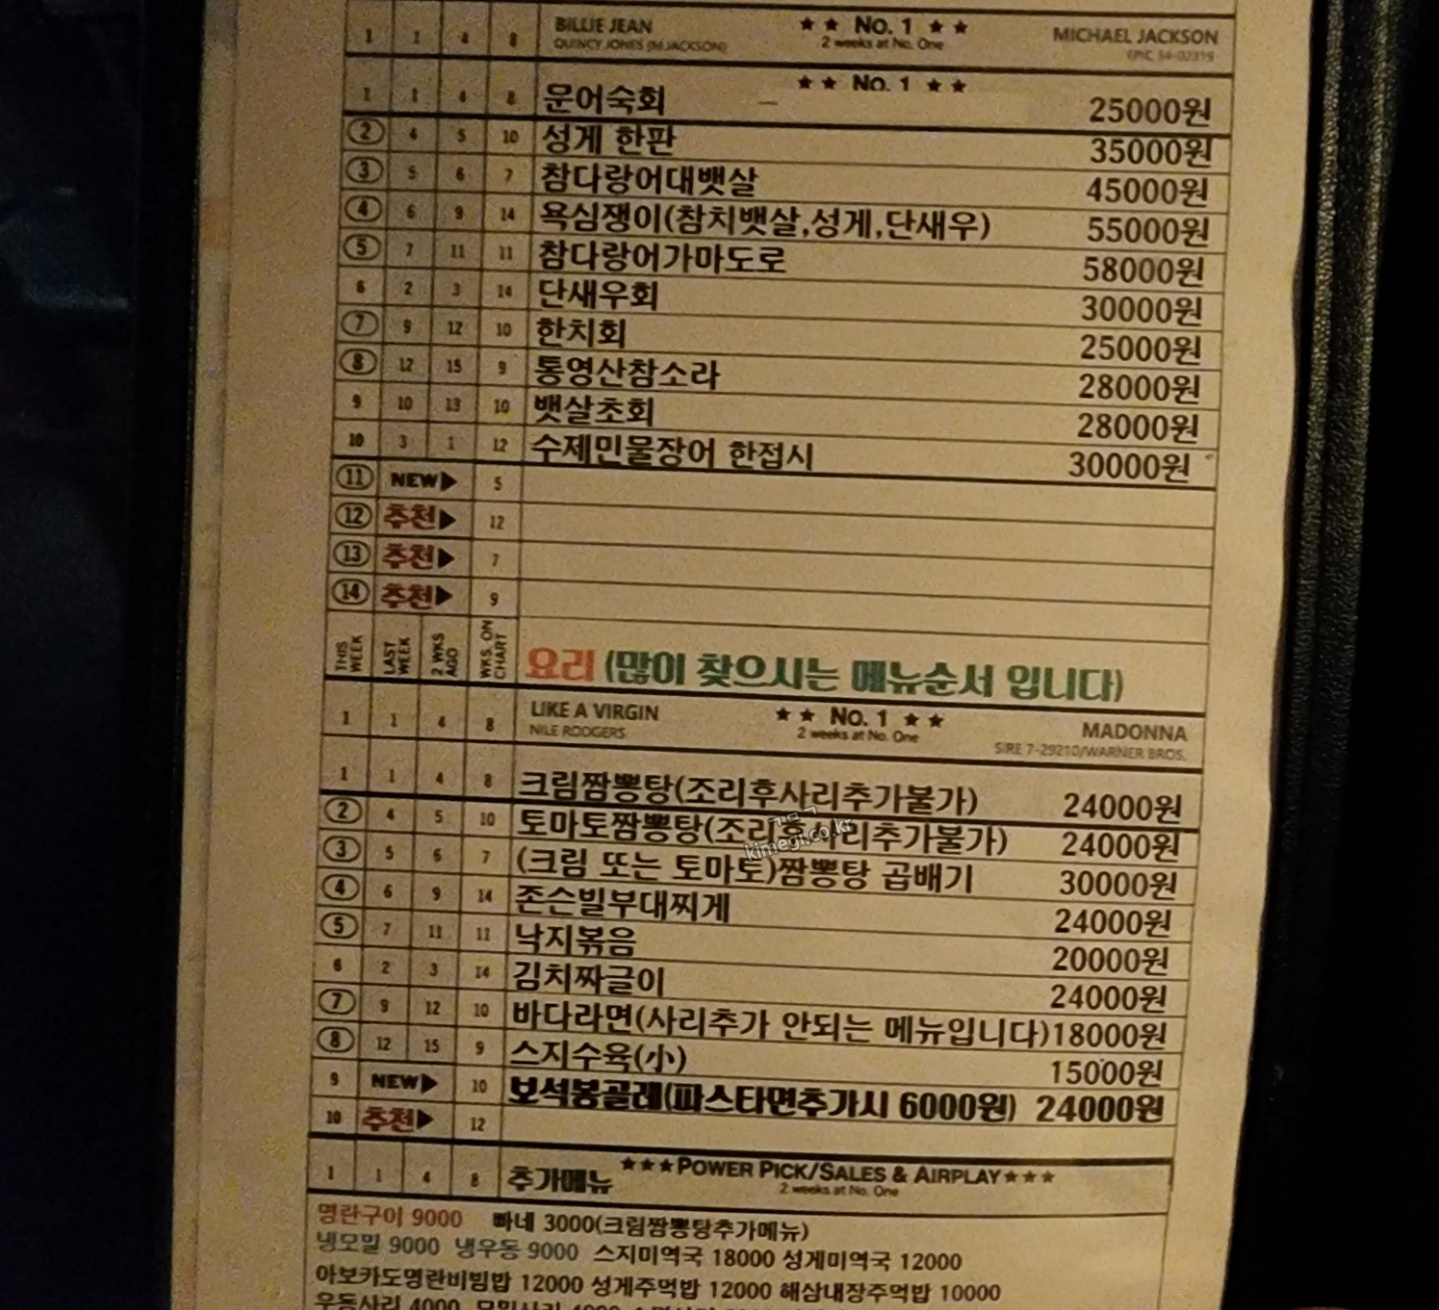 1 1 4 8 BILLIE JEAN ★ ★ No. 1 ★ ★ MICHAEL JACKSON
QUINCY JONES (M.JACKSON) 2 weeks at No. One EPIC 34-02319
★ ★ No. 1 ★ ★
1 1 4 8 문어숙회 25000원
② 4 5 10 성게 한판 35000원
③ 5 6 7 참다랑어대뱃살 45000원
④ 6 9 14 욕심쟁이(참치뱃살,성게,단새우) 55000원
⑤ 7 11 11 참다랑어가마도로 58000원
6 2 3 14 단새우회 30000원
⑦ 9 12 10 한치회 25000원
⑧ 12 15 9 통영산참소라 28000원
9 10 13 10 뱃살초회 28000원
10 3 1 12 수제민물장어 한접시 30000원
⑪ NEW▶ 5
⑫ 추천▶ 12
⑬ 추천▶ 7
⑭ 추천▶ 9
THIS WEEK LAST WEEK 2 WKS AGO WKS. ON CHART 요리 (많이 찾으시는 메뉴순서 입니다)
1 1 4 8 LIKE A VIRGIN ★ ★ No. 1 ★ ★ MADONNA
NILE RODGERS 2 weeks at No. One SIRE 7-29210/WARNER BROS.
1 1 4 8 크림짬뽕탕(조리후사리추가불가) 24000원
② 4 5 10 토마토짬뽕탕(조리후사리추가불가) 24000원
③ 5 6 7 (크림 또는 토마토)짬뽕탕 곱배기 30000원
④ 6 9 14 존슨빌부대찌게 24000원
⑤ 7 11 11 낙지볶음 20000원
6 2 3 14 김치짜글이 24000원
⑦ 9 12 10 바다라면(사리추가 안되는 메뉴입니다)18000원
⑧ 12 15 9 스지수육(小) 15000원
9 NEW▶ 10 보석봉골레(파스타면추가시 6000원) 24000원
10 추천▶ 12
1 1 4 8 추가메뉴 ★★★POWER PICK/SALES & AIRPLAY★★★
2 weeks at No. One
명란구이 9000 빠네 3000(크림짬뽕탕추가메뉴)
냉모밀 9000 냉우동 9000 스지미역국 18000 성게미역국 12000
아보카도명란비빔밥 12000 성게주먹밥 12000 해삼내장주먹밥 10000
우동사리 4000
kimegi.co.kr